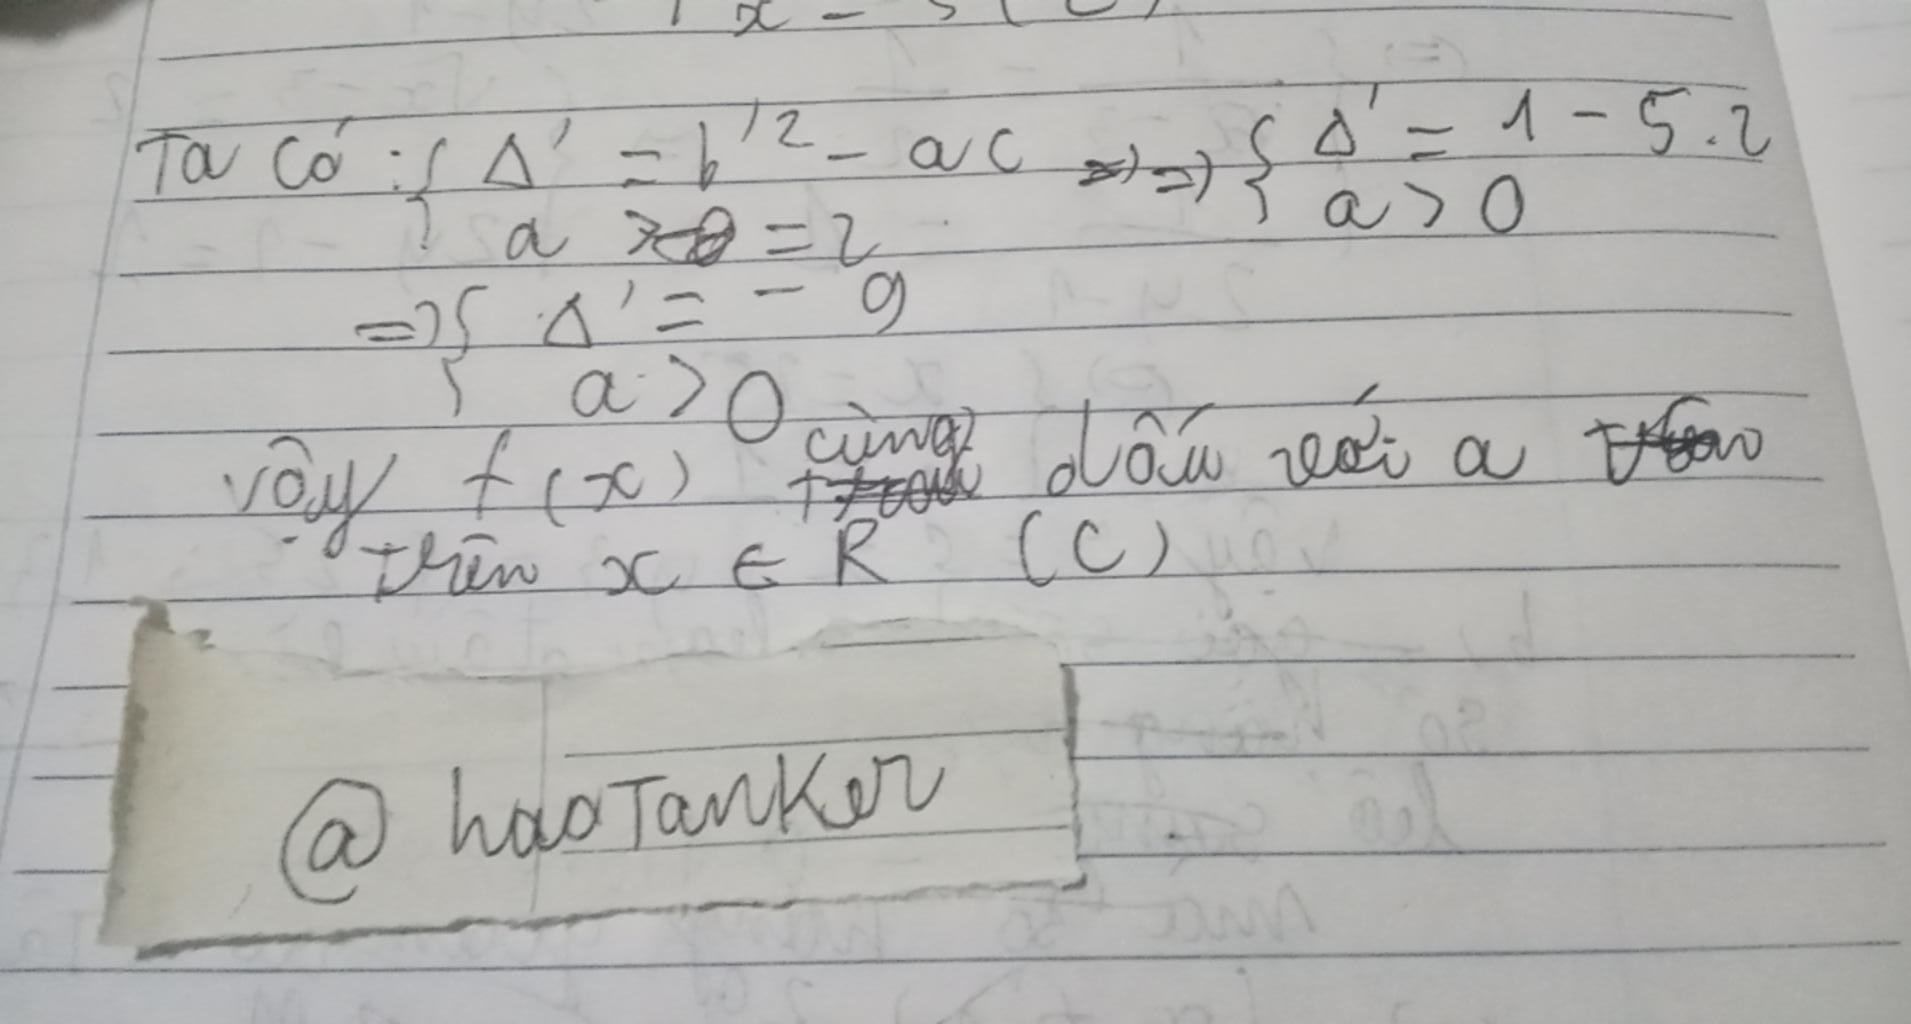 x - 5 (
Ta có : { Δ' = b'² - ac => => { Δ' = 1 - 5.2
{ a > 0 = 2 { a > 0
=> { Δ' = - 9
{ a > 0
vậy f(x) cùng dấu với a
trên x ∈ R (C)
@haoTanKer